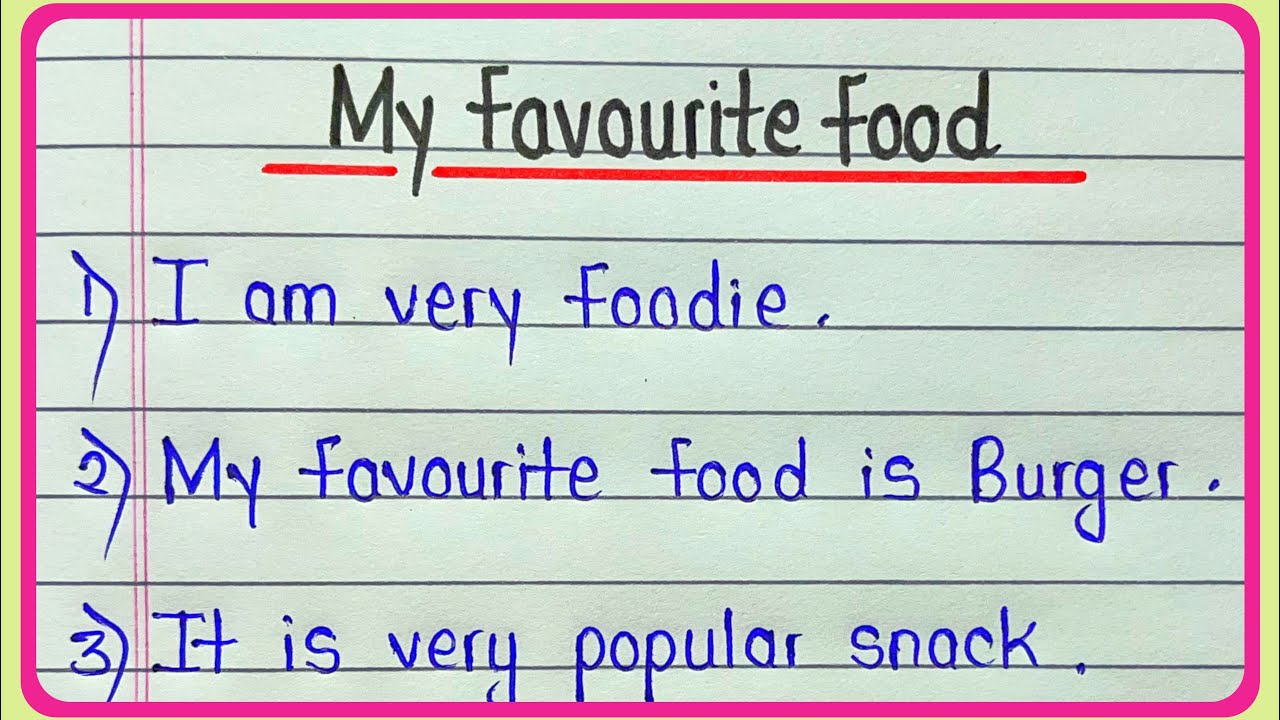 My favourite food
1) I am very foodie.
2) My favourite food is Burger.
3) It is very popular snack.